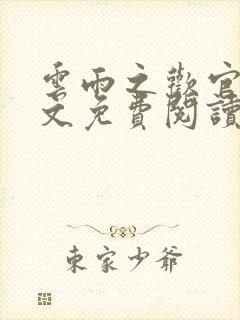 雲雨之歡官
文免費閱讀
東家少爺